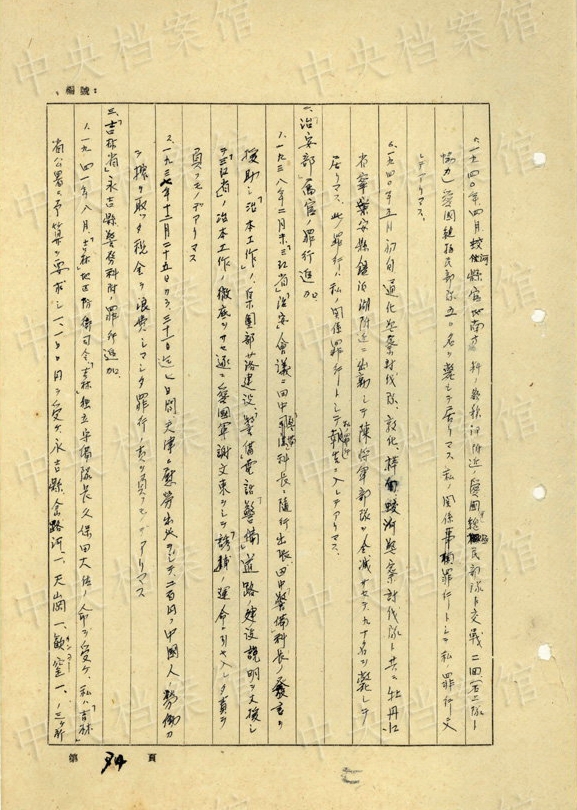 中央档案馆
編號：
一九四〇年四月
縣官地南方
附近ノ愛国
民部隊ト交戦二回
協力シ愛国
民部隊五〇名ヲ斃シテ居リマス、私ノ関係
罪行トシテ私ノ罪行
デアリマス、
一九四〇年五月初旬通化
察討伐隊、敦化、樺甸
蛟河警察討伐隊ト共ニ牡丹江
省寧安縣鏡泊湖附近ニ出動シテ陳
軍部隊ヲ全滅サセテ九十名ヲ斃シテ
居リマス、此ノ罪行ハ私ノ関係罪行トシテ報告ニ入レテアリマス、
二、「治安部」属官ノ罪行追加、
1. 一九三八年二月末三江省「治安」会議ニ田中
科長ニ随行出張、田中「警備」科長ノ発言ヲ
援助シ「治本工作」ノ集團部落建設、「警備」電話、「警備」道路ノ建設説明ヲ支援シ
「三江省」ノ治本工作ノ徹底ヲサセ遂ニ愛國軍謝文東ヲシテ
運命ニ引キ入レタ責ヲ
負フモノデアリマス
2. 一九三七年十二月二十五日カラ三十一日迄七日間天津ニ慰労出張ヲシテ、二百円ノ中國人ノ労働力
ヲ搾リ取ッタ税金ヲ浪費シマシタ罪行ノ責ヲ負フモノデアリマス
三、「吉林省」永吉縣警務科附ノ罪行追加、
1. 一九四一年八月、「吉林」地区防衛司令「吉林」独立守備隊長久保田大佐ノ命ヲ受ケ、私ハ「吉林」
省公署ニ予算ヲ要求シ
円ヲ受ケ永吉縣
河一、天岡一、
一、ノ三ヶ所
第 34 頁